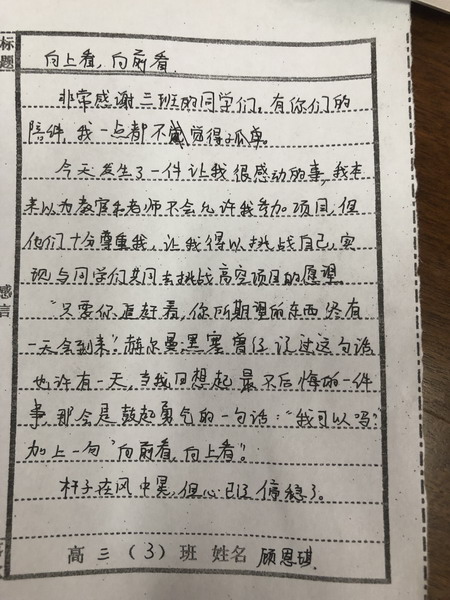 标题
向上看，向前看
非常感谢三班的同学们，有你们的
陪伴，我一点都不觉得孤单。
今天发生了一件让我很感动的事，我本
来以为教官和老师不会允许我参加项目，但
他们十分尊重我，让我得以挑战自己，实
现与同学们共同去挑战高空项目的愿望。
“只要你追赶着，你所期望的东西终有
一天会到来”赫尔曼·黑塞曾经说过这句话
也许有一天，当我回想起最不后悔的一件
事，那会是鼓起勇气的一句话：“我可以吗？”
加上一句“向前看，向上看”。
杆子在风中晃，但心已停稳了。
感言
高三（3）班 姓名 顾恩琪